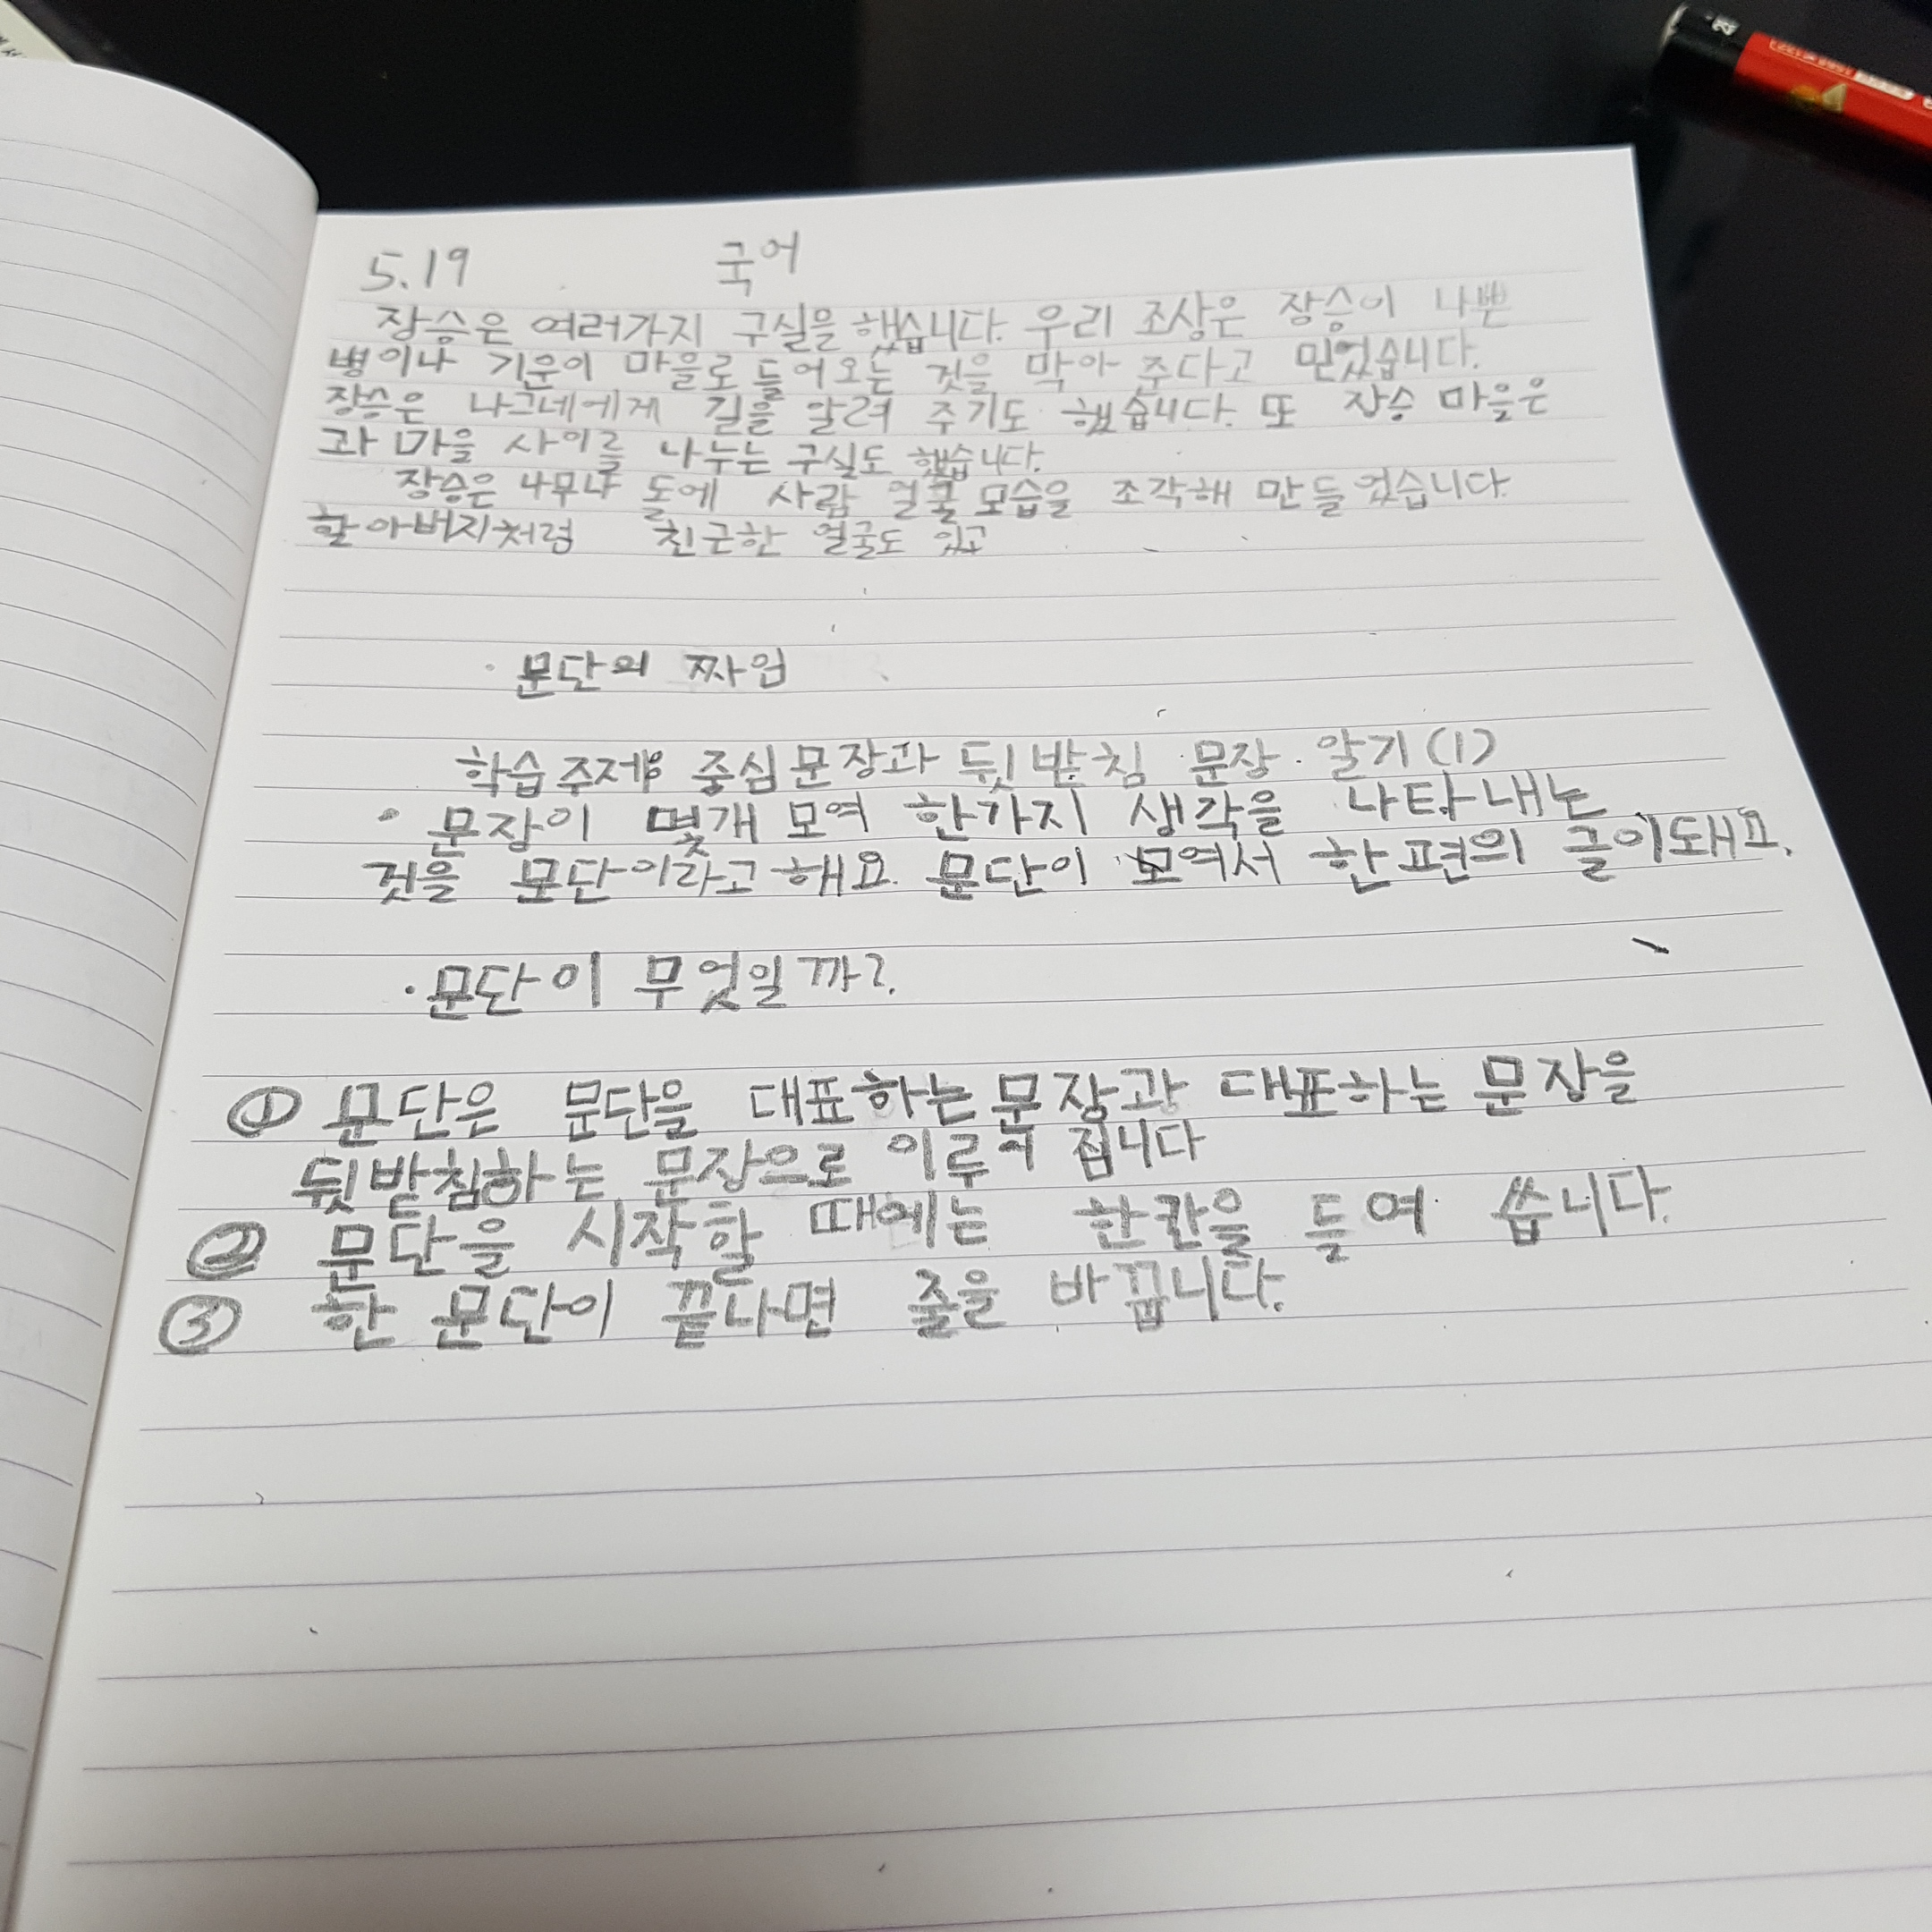 5.19 국어
장승은 여러가지 구실을 했습니다. 우리 조상은 장승이 나쁜
병이나 기운이 마을로 들어오는 것을 막아 준다고 믿었습니다.
장승은 나그네에게 길을 알려 주기도 했습니다. 또 장승 마을은
과 마을 사이를 나누는 구실도 했습니다.
장승은 나무나 돌에 사람 얼굴 모습을 조각해 만들었습니다
할아버지처럼 친근한 얼굴도 있고
· 문단의 짜임
학습주제: 중심문장과 뒷받침 문장 알기(1)
· 문장이 몇개 모여 한가지 생각을 나타내는
것을 문단이라고 해요 문단이 모여서 한편의 글이돼요.
· 문단이 무엇일까?
① 문단은 문단을 대표하는 문장과 대표하는 문장을
뒷받침하는 문장으로 이루어 집니다
② 문단을 시작할 때에는 한칸을 들여 씁니다.
③ 한 문단이 끝나면 줄을 바꿉니다.